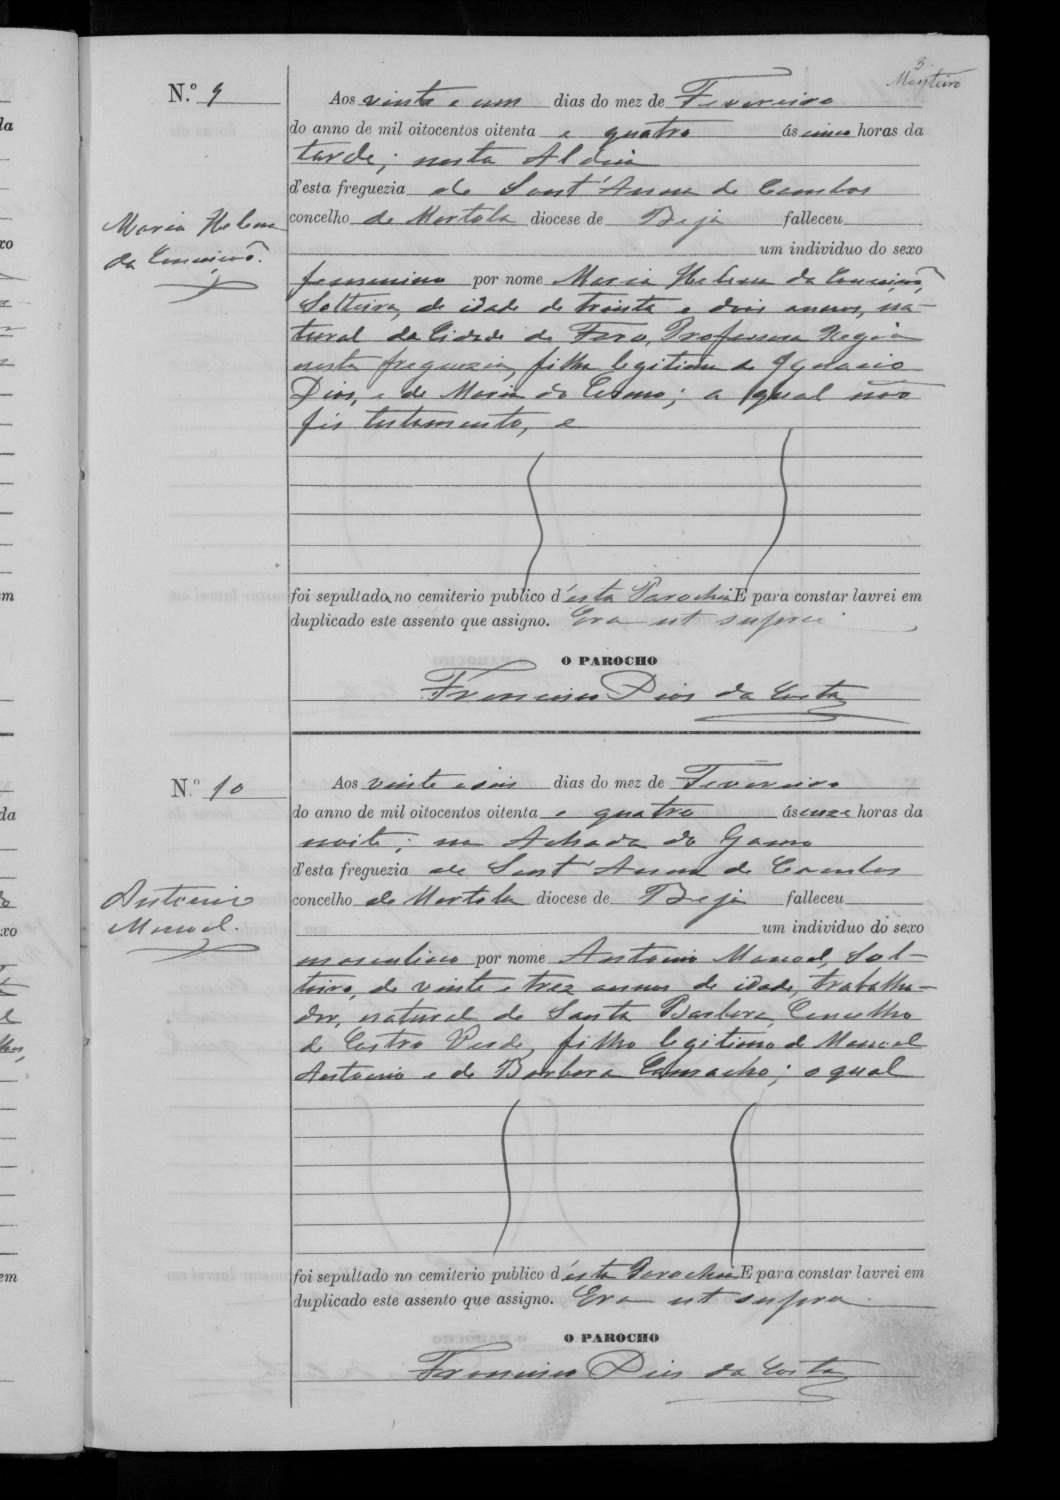 3
Monteiro
N.º 9
Aos vinte e um dias do mez de Fevereiro
do anno de mil oitocentos oitenta e quatro ás cinco horas da
tarde; nesta Aldeia
d'esta freguezia de Sant'Anna de Cambas
concelho de Mertola diocese de Beja falleceu
um individuo do sexo
Maria Helena
da Conceição.
femenino por nome Maria Helena da Conceição,
Solteira, de idade de trinta e dois annos, na-
tural da Cidade de Faro, Professora Regia
nesta freguezia, filha legitima de Ignacio
Dias, e de Maria do Carmo; a qual não
fes testamento, e
foi sepultada no cemiterio publico d'esta Parochia E para constar lavrei em
duplicado este assento que assigno. Era ut supra
O PAROCHO
Francisco Dias da Costa
N.º 10
Aos vinte e seis dias do mez de Fevereiro
do anno de mil oitocentos oitenta e quatro ás onze horas da
noite; na Achada do Gamo
d'esta freguezia de Sant'Anna de Cambas
concelho de Mertola diocese de Beja falleceu
um individuo do sexo
Antonio
Manoel.
masculino por nome Antonio Manoel, Sol-
teiro, de vinte e trez annos de idade, trabalha-
dor, natural de Santa Barbora, Concelho
de Castro Verde, filho legitimo de Manoel
Antonio e de Barbora Camacho; o qual
foi sepultado no cemiterio publico d'esta Parochia E para constar lavrei em
duplicado este assento que assigno. Era ut supra
O PAROCHO
Francisco Dias da Costa